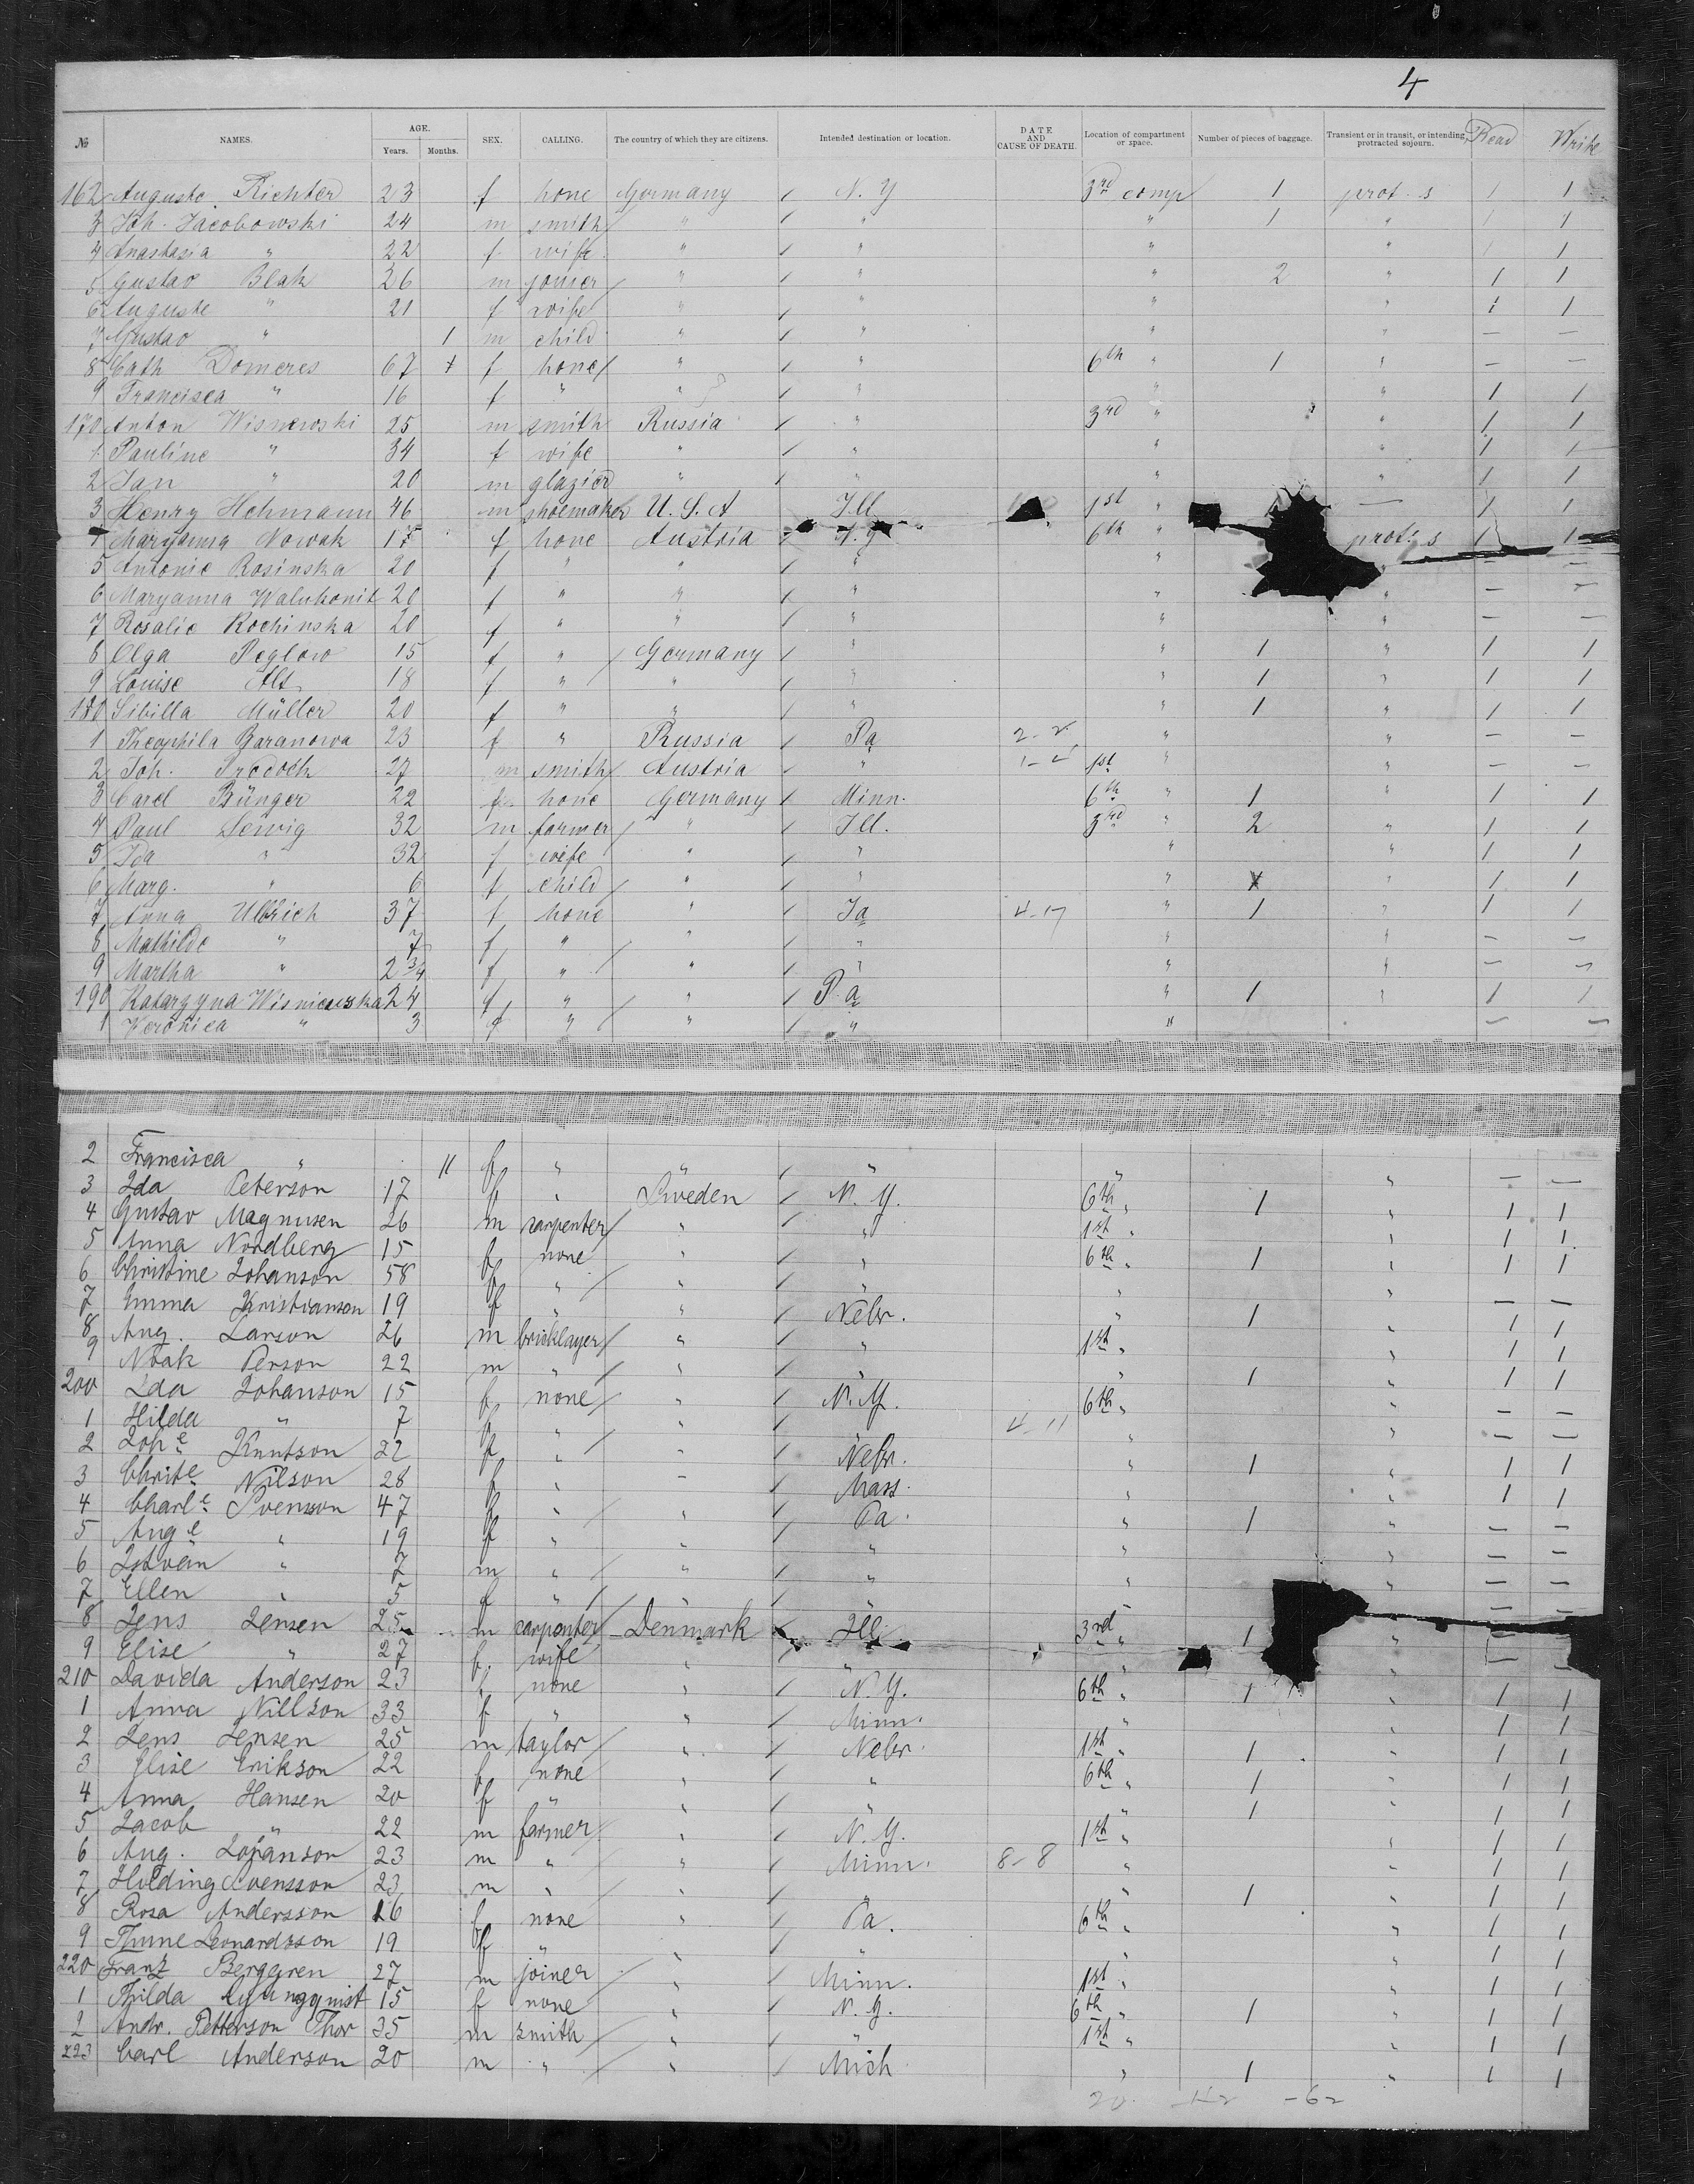 4
№ NAMES. AGE. Years. Months. SEX. CALLING. The country of which they are citizens. Intended destination or location. DATE AND CAUSE OF DEATH. Location of compartment or space. Number of pieces of baggage. Transient or in transit, or intending protracted sojourn. Read Write
162 Auguste Richter 23 f none Germany / N. Y 3rd comp 1 prot. s 1 1
3 Joh. Jacobowski 24 m smith / " / " " 1 " 1 1
4 Anastasia " 22 f wife " / " " " 1 1
5 Gustav Blak 26 m joiner / " / " " 2 " 1 1
6 Auguste " 21 f wife " / " " " 1 1
7 Gustav " 1 m child " / " " " — —
8 Cath Domeres 67 + f none / " / " 6th " 1 " — —
9 Francisca " 16 f " " / " " " 1 1
170 Anton Wisnewski 25 m smith Russia / " 3rd " " 1 1
1 Pauline " 34 f wife " / " " " 1 1
2 Jan " 20 m glazier " / " " " 1 1
3 Henry Hehmann 46 m shoemaker U. S. A Ill 1st " — 1 1
4 Maryanna Nowak 17 f none Austria / N. Y 6th " prot. s 1 1
5 Antonie Rosinska 20 f " " / " " — —
6 Maryanna Walukonit 20 f " " / " " " — —
7 Rosalie Kochinska 20 f " " / " " " — —
8 Olga Peglow 15 f " / Germany / " " 1 " 1 1
9 Louise Alt 18 f " / " / " " 1 " 1 1
180 Sibilla Müller 20 f " " / " " 1 " 1 1
1 Theophila Baranowa 23 f " Russia / Pa " " — —
2 Joh. 27 m smith / Austria / " 1st " " — —
3 Carel Bünger 22 f none Germany / Minn. 6th " 1 " 1 1
4 Paul Lewig 32 m farmer / " / Ill. 3rd " 2 " 1 1
5 Ida " 32 f wife " / " " " 1 1
6 Marg. " 6 f child / " / " " " 1 1
7 Anna Ulbrich 37 f none " / Ia 4-17 " 1 " 1 1
8 Mathilde " 7 f " / " / " " " — —
9 Martha " 2 3/4 f " / " / " " " — —
190 Katarzyna Wisniewska 24 f " / " / Pa " 1 " 1 1
1 Veronica " 3 f " / " / " " — —
2 Francisca " 11 f " " / " " " — —
3 Ida Peterson 17 f " Sweden / N. Y. 6th " 1 " 1 1
4 Gustav Magnusen 26 m carpenter / " / " 1st " " 1 1
5 Anna Nordberg 15 f none " / " 6th " 1 " 1 1
6 Christine Johanson 58 f " / " / " " " — —
7 Emma Kristianson 19 f " " / Nebr. " 1 " 1 1
8 Aug. Larson 26 m bricklayer / " / " 1st " " 1 1
9 Noak Person 22 m " / " / " " 1 " 1 1
200 Ida Johanson 15 f none / " / N. Y. 6th " " — —
1 Hilda " 7 f " " / " 4-11 " " — —
2 Joh e Knutson 22 f " / " / Nebr. " 1 " 1 1
3 Christe Nilson 28 f " " / Mass. " " 1 1
4 Charle Svensson 47 f " / " / Pa. " 1 " — —
5 Auge " 19 f " " / " " " — —
6 Istvan " 7 m " / " / " " " — —
7 Ellen " 5 f " / " / — —
8 Jens Jensen 25 m carpenter / Denmark / Ill 3rd " 1 "
9 Elise " 27 f wife " " " —
210 Davida Anderson 23 f none " / N. Y. 6th " 1 " 1 1
1 Anna Nillson 33 f " " / Minn. " 1 1
2 Jens Jensen 25 m taylor / " / Nebr. 1st " 1 " 1 1
3 Elise Erikson 22 f none " / " 6th " 1 " 1 1
4 Anna Hansen 20 f " " / " " 1 " 1 1
5 Jacob " 22 m farmer / " / N. Y. 1st " " 1 1
6 Aug. Johanson 23 m " / " / Minn. 8-8 " " 1 1
7 Hilding Svensson 23 m " / " / " " 1 " 1 1
8 Rosa Andersson 16 f none " / Pa. 6th " " 1 1
9 Thune Leonardsson 19 f " " / " " " 1 1
220 Franz Berggren 27 m joiner / " / Minn. 1st " " 1 1
1 Thilda Ljungqvist 15 f none " / N. Y. 6th " 1 " 1 1
2 Andr. Petterson Thor 35 m smith / " / " 1st " " 1 1
223 Carl Anderson 20 m " / " / Mich " 1 " 1 1
20